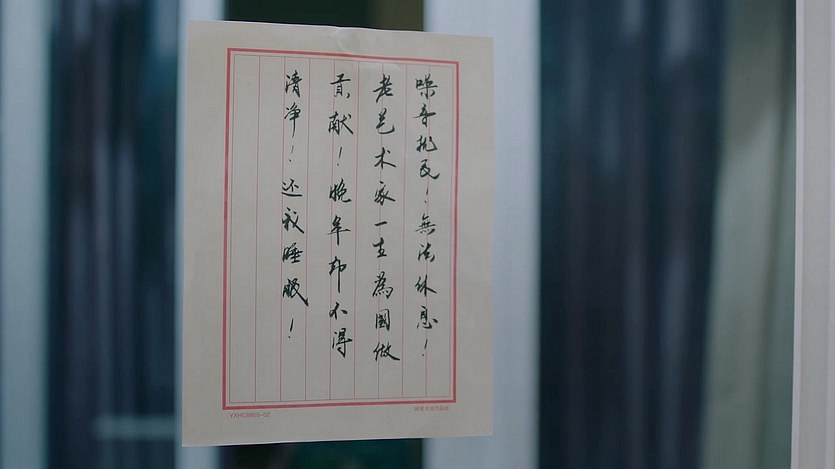 噪音扰民！無法休息！
老艺术家一生為國做
贡献！晚年却不得
清净！还我睡眠！
YXHC8865-02